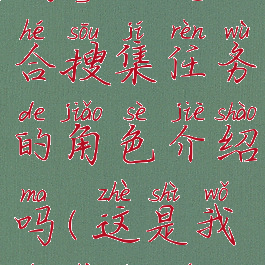 hé sōu jí rèn wù
合搜集任务
de jiǎo sè jiè shào
的角色介绍
ma zhè shì wǒ
吗(这是我